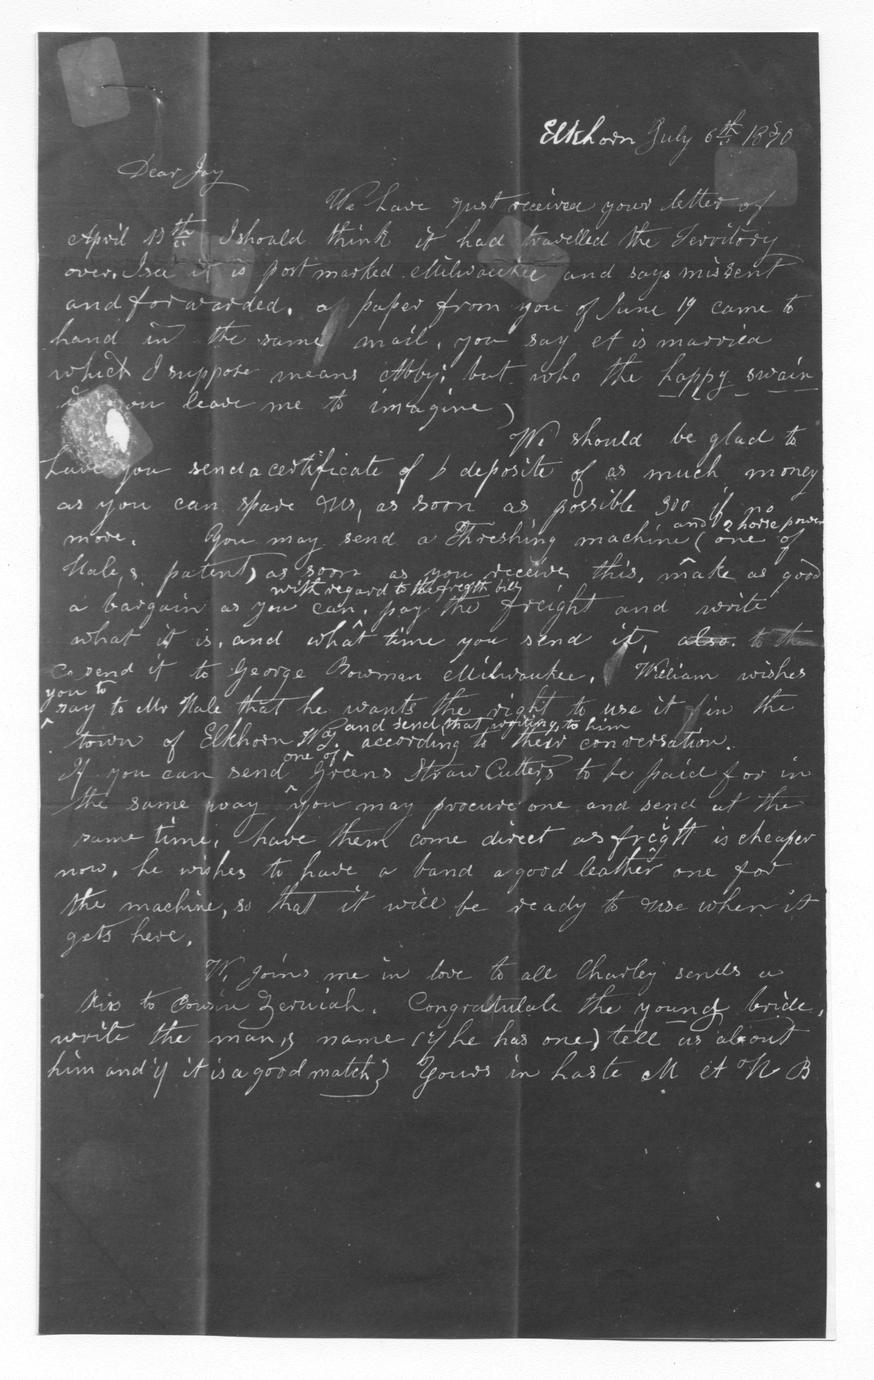 Elkhorn July 6th 1840
Dear Jay
We have just received your letter of
April 13th I should think it had travelled the Territory
over. I see it is post marked Milwaukee and says missent
and forwarded. a paper from you of June 19 came to
hand in the same mail. you say A is married
which I suppose means Abby; but who the happy swain
is you leave me to imagine)
We should be glad to
have you send a certificate of deposite of as much money
as you can spare us, as soon as possible 300 if no
more. You may send a Threshing machine (one of
and 2 horse power
Hale,s patent) as soon as you receive this, make as good
with regard to the freigth bill
a bargain as you can. pay the freight and write
what it is, and what time you send it, also. to the
co send it to George Bowman Milwaukee. William wishes
you to
say to Mr Hale that he wants the right to use it in the
and send that writing, to him
town of Elkhorn W. according to their conversation.
one of
If you can send Greens Straw Cutters to be paid for in
the same way you may procure one and send at the
same time, have them come direct as freight is cheaper
now. he wishes to have a band a good leather one for
the machine, so that it will be ready to use when it
gets here.
W. joins me in love to all Charley sends a
kiss to Cousin Zeruiah. Congratulate the young bride,
write the man,s name (if he has one) tell us about
him and if it is a good match} Yours in haste M A N B